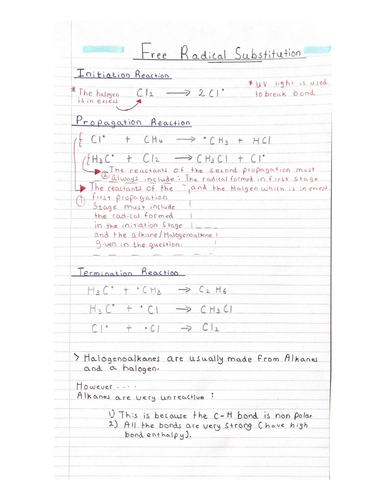 Free Radical Substitution
Initiation Reaction
* The halogen
is in excess
Cl2 → 2Cl•
* UV light is used
to break bond
Propagation Reaction
Cl• + CH4 → •CH3 + HCl
H3C• + Cl2 → CH3Cl + Cl•
The reactants of the second propagation must
② Always include: The radical formed in first stage
and the Halgen which is in excess
① The reactants of the
first propagation
Stage must include
the radical formed
in the initiation Stage
and the alkane/Halogenoalkane
given in the question.
Termination Reaction
H3C• + •CH3 → C2H6
H3C• + •Cl → CH3Cl
Cl• + •Cl → Cl2
> Halogenoalkanes are usually made from Alkanes
and a halogen.
However ....
Alkanes are very unreactive :
1) This is because the C-H bond is non polar
2) All the bonds are very strong (have high
bond enthalpy).